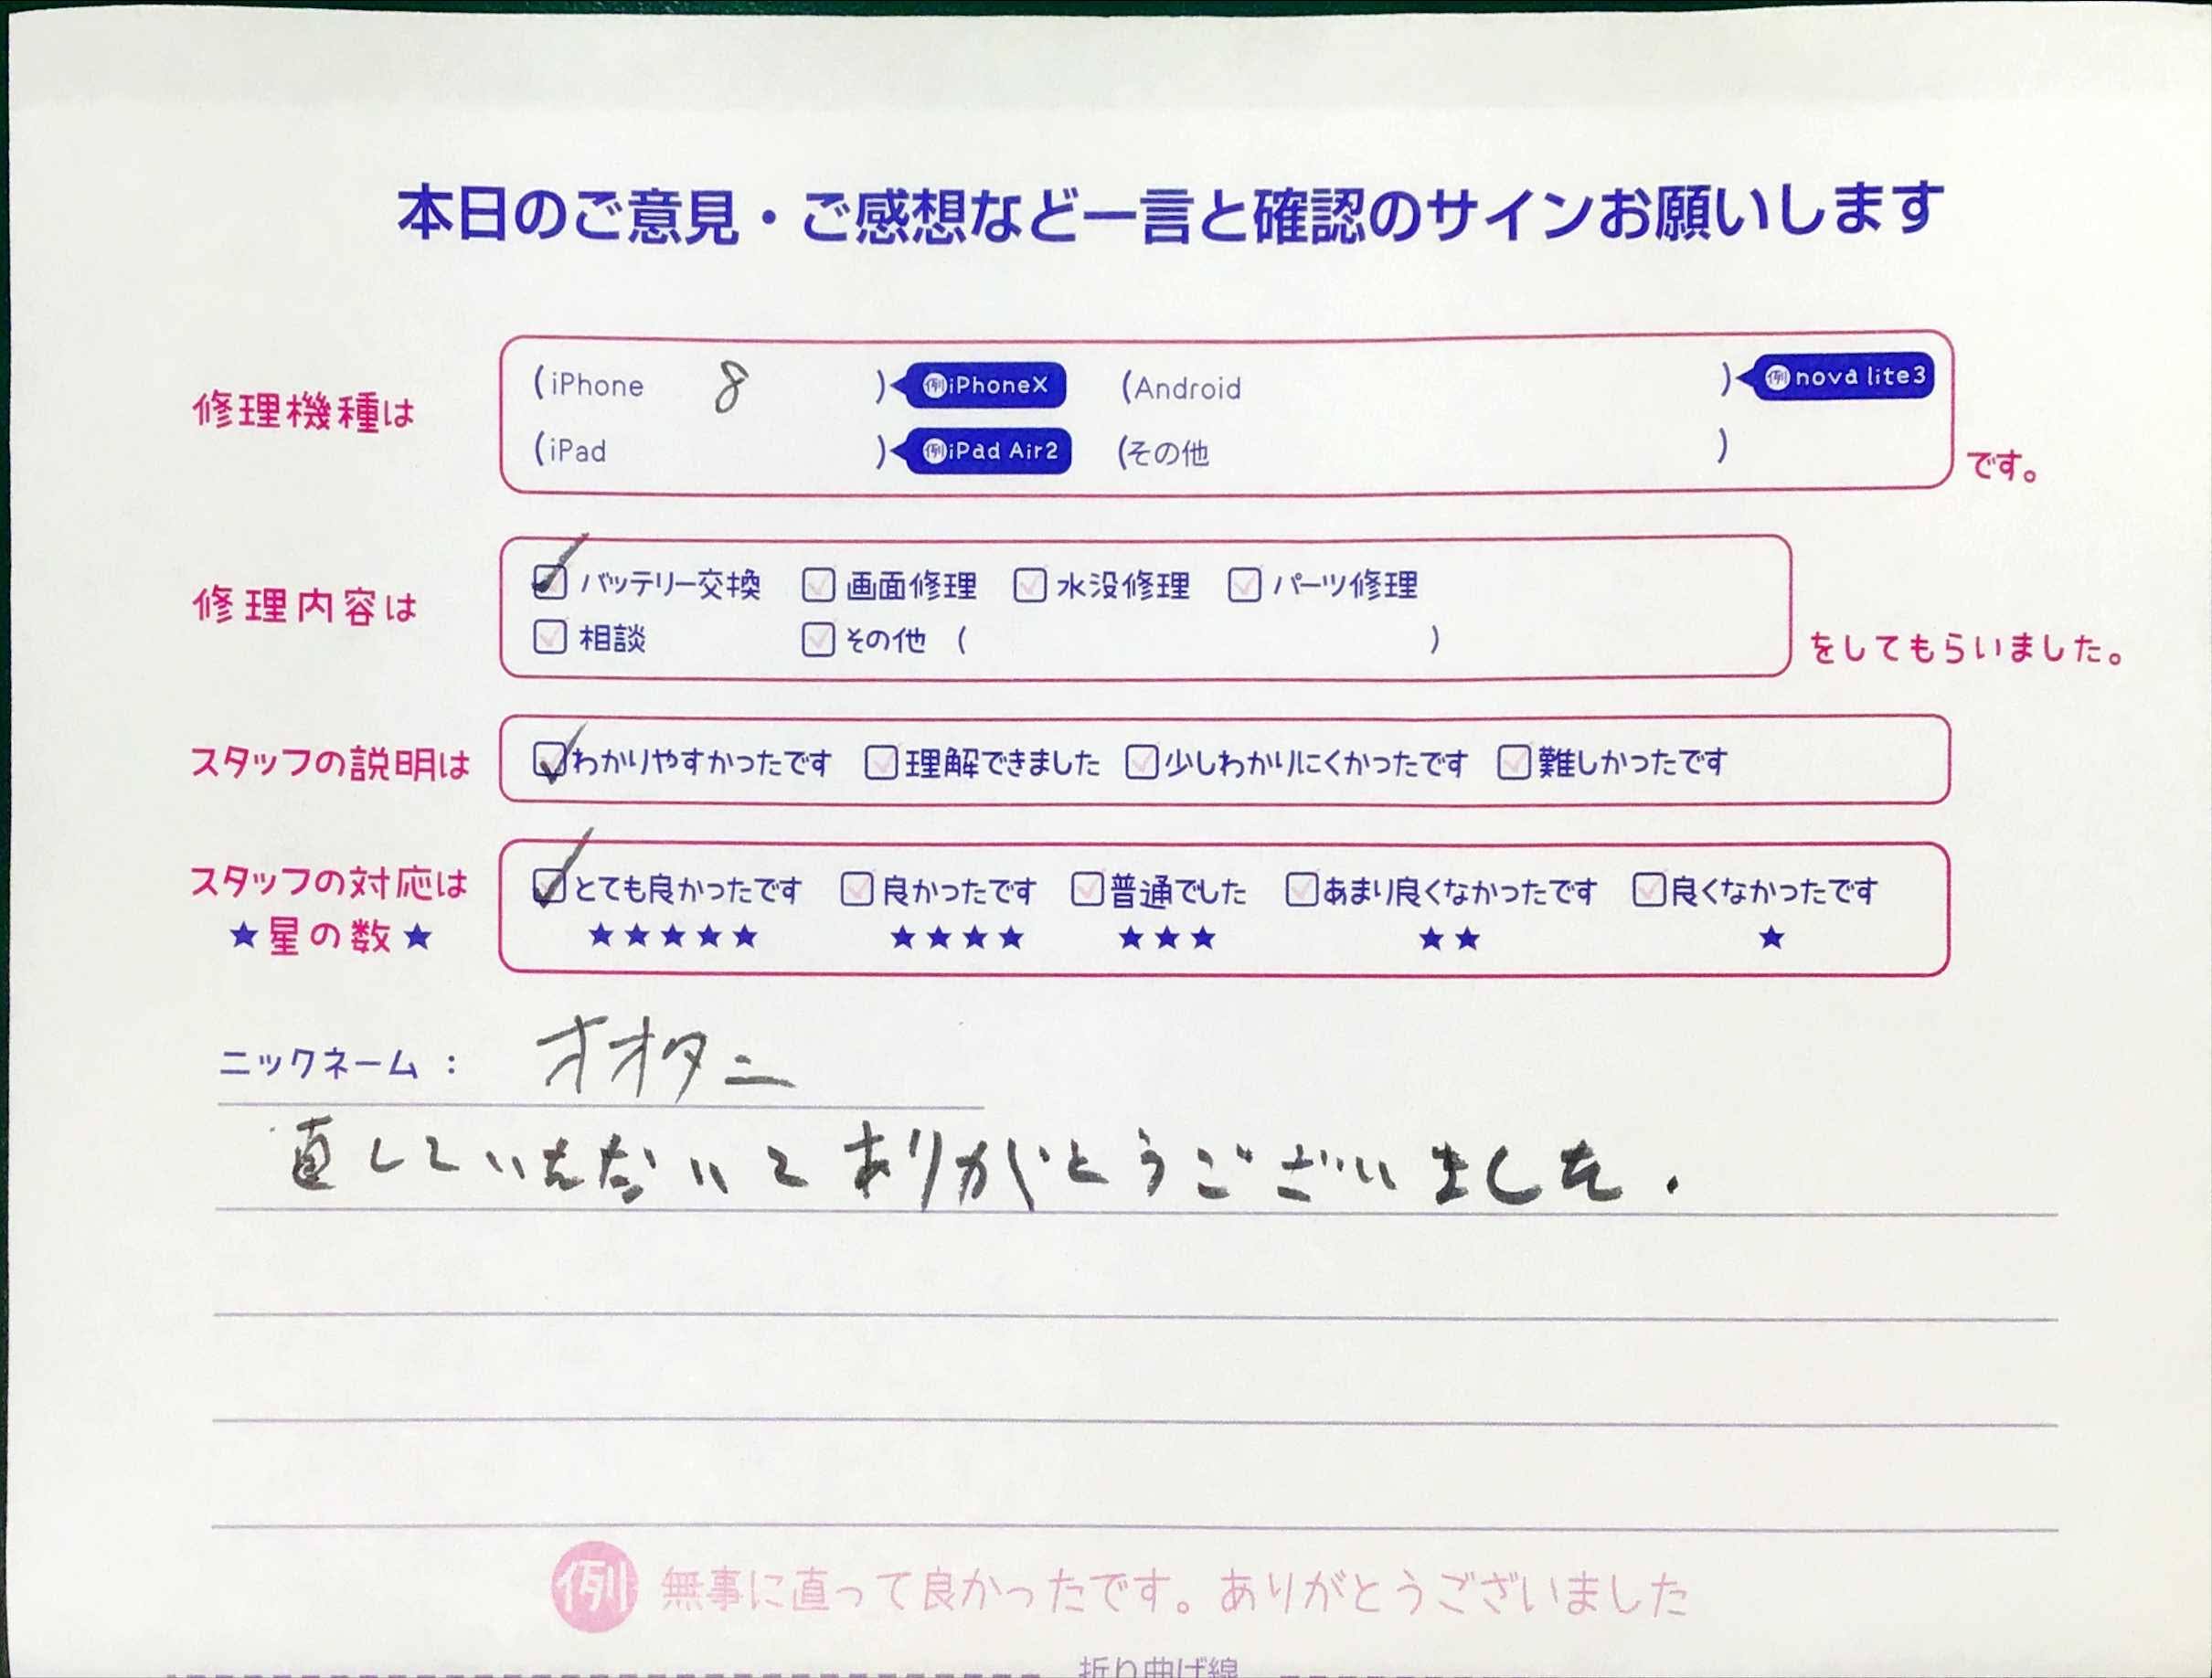 本日のご意見・ご感想など一言と確認のサインお願いします
修理機種は (iPhone 8 ) 例iPhoneX (Android ) 例nova lite3
(iPad ) 例iPad Air2 (その他 ) です。
修理内容は バッテリー交換 画面修理 水没修理 パーツ修理
相談 その他 ( ) をしてもらいました。
スタッフの説明は わかりやすかったです 理解できました 少しわかりにくかったです 難しかったです
スタッフの対応は とても良かったです 良かったです 普通でした あまり良くなかったです 良くなかったです
★星の数★ ★★★★★ ★★★★ ★★★ ★★ ★
ニックネーム： オオタニ
直していただいてありがとうございました.
例 無事に直って良かったです。ありがとうございました
折り曲げ線